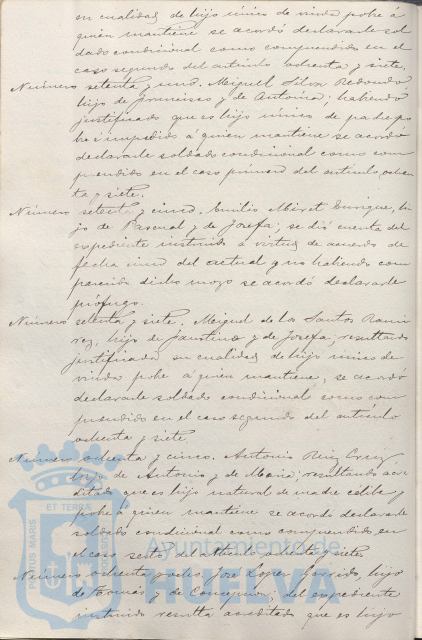 en cualidad de hijo único de viuda pobre á
quien mantiene se acordó declararle sol
dado condicional como comprendido en el
caso segundo del artículo ochenta y siete.
Número setenta y uno. Miguel Silva Redondo
hijo de Francisco y de Antonia; habiendo
justificado que es hijo único de padre po
bre impedido á quien mantiene se acordó
declararle soldado condicional como com
prendido en el caso primero del artículo ochen
ta y siete.
Número setenta y cinco. Emilio Miret Enrique, hi
jo de Pascual y de Josefa; se dió cuenta del
expediente instruido á virtud de acuerdo de
fecha uno del actual y no habiendo com
parecido dicho mozo se acordó declararle
prófugo.
Número setenta y siete. Miguel de los Santos Rami
rez, hijo de Faustino y de Josefa; resultando
justificada su cualidad de hijo único de
viuda pobre á quien mantiene, se acordó
declararle soldado condicional como com
prendido en el caso segundo del artículo
ochenta y siete.
Número ochenta y cinco. Antonio Ruiz Cruz
hijo de Antonio y de Maria; resultando acre
ditado que es hijo natural de madre célibe y
pobre á quien mantiene se acordó declararle
soldado condicional como comprendido en
el caso sexto del artículo ochenta y siete
Número ochenta y ocho. José Lopez Garrido, hijo
de Tomas y de Concepcion; del expediente
instruido resulta acreditado que es hijo
PORTUS MARIS
ET TERRAE
CUSTODIA
Ayuntamiento de
HUELVA